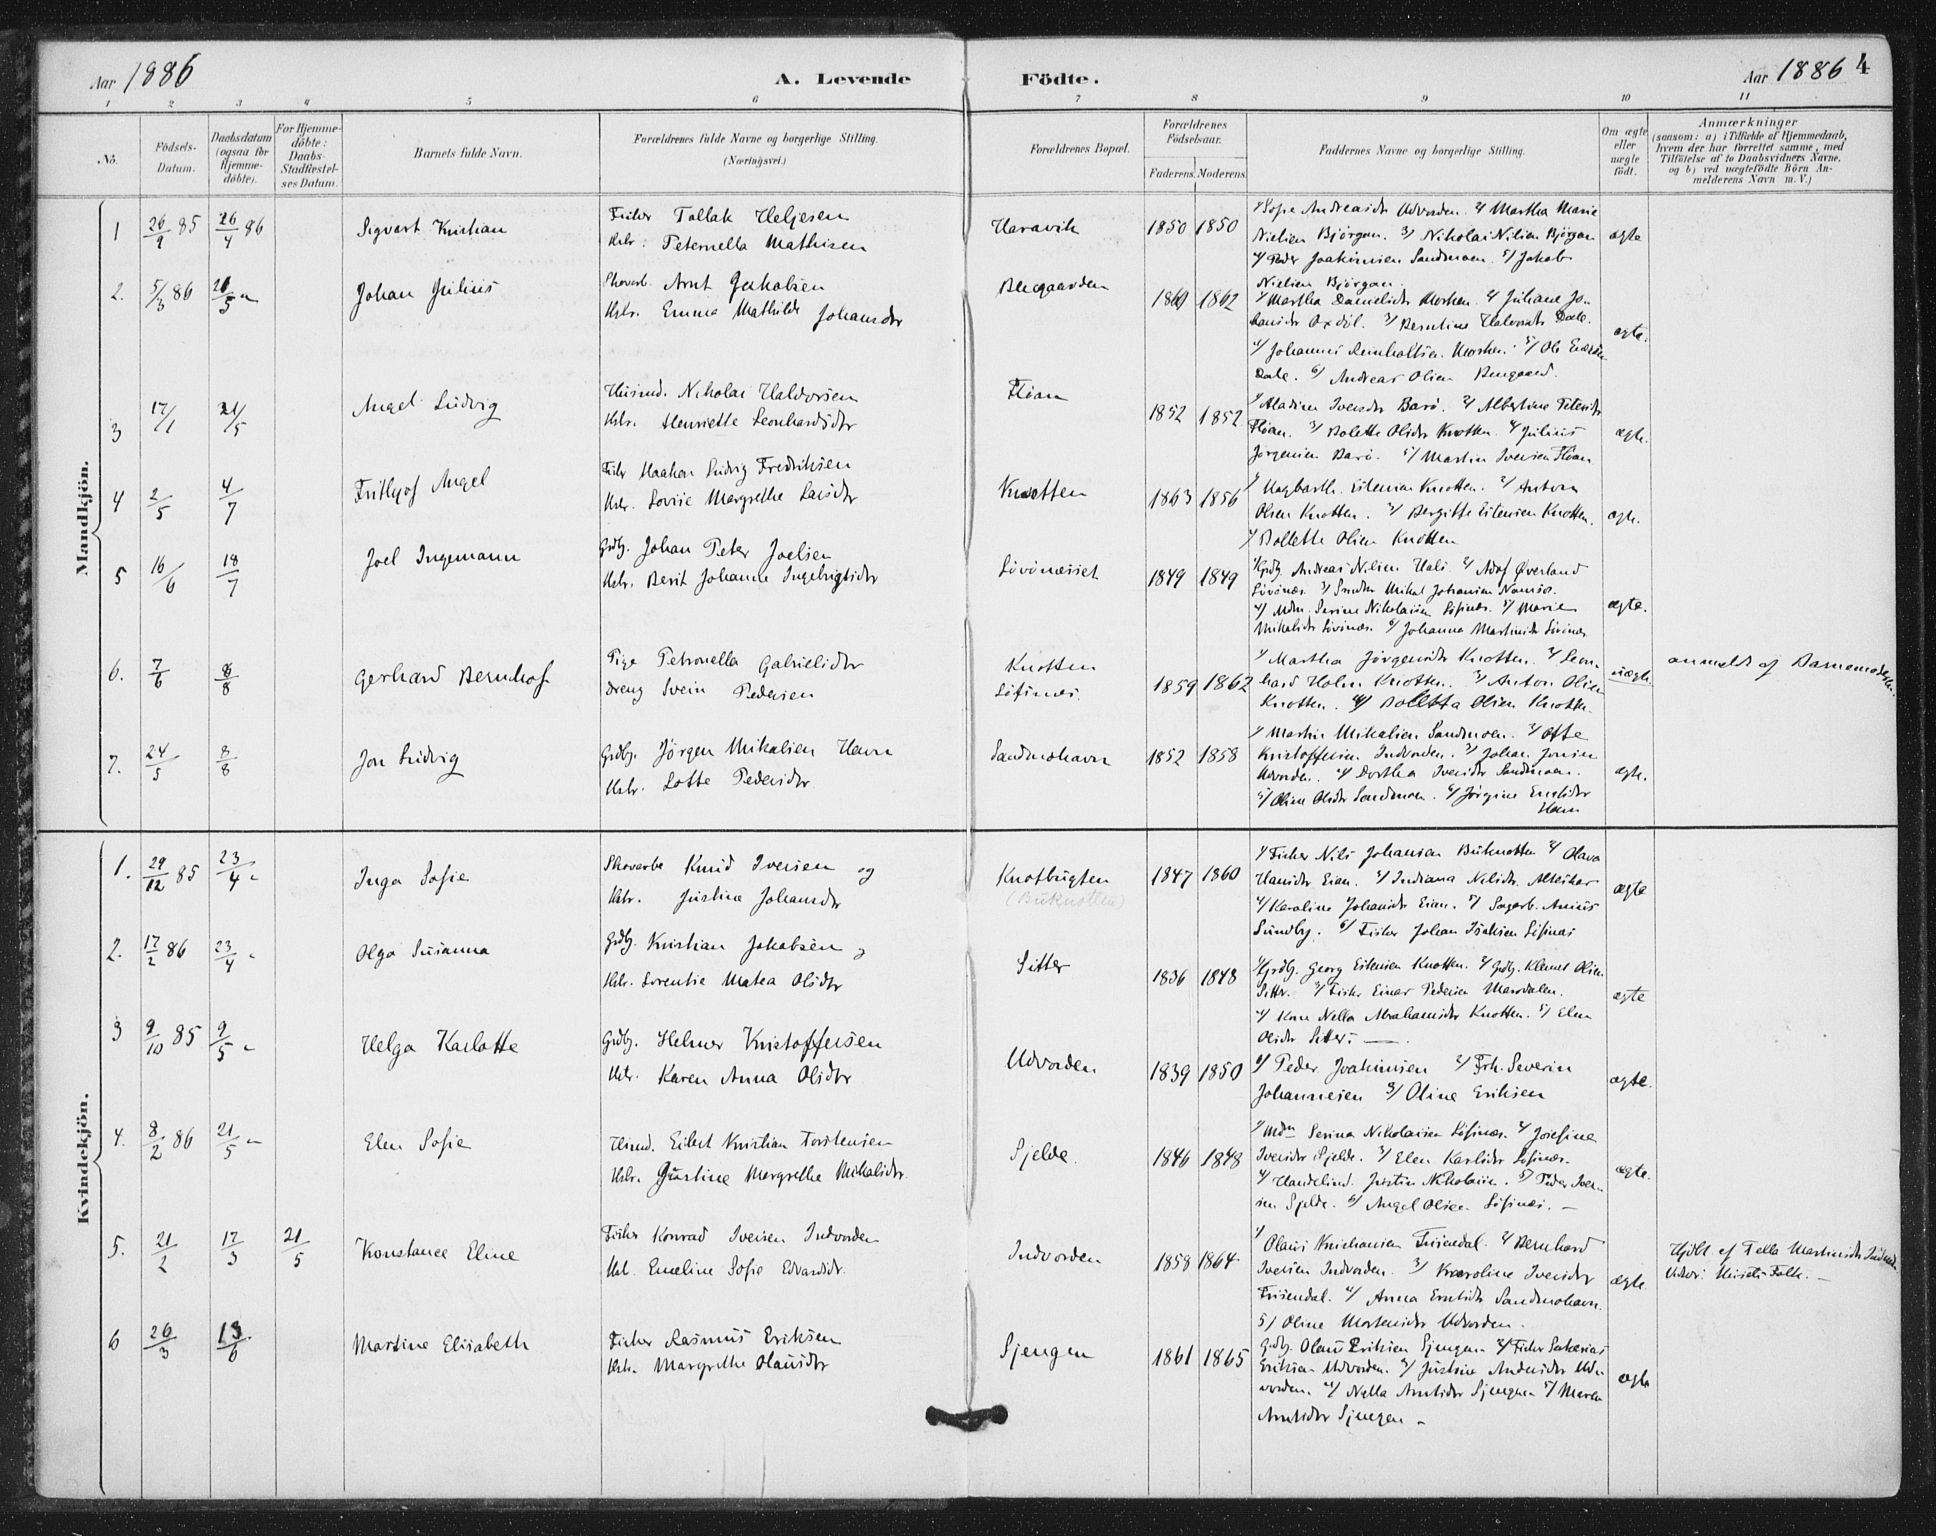 Aar 1886
A. Levende
Födte.
Aar 1886
4
1 2 3 4 5 6 7 8 9 10 11
No.
Födsels-
Datum.
Daabsdatum
(ogsaa for
Hjemme-
döbte).
For Hjemme-
döbte:
Daabs-
Stadfæstel-
ses Datum.
Barnets fulde Navn.
Forældrenes fulde Navne og borgerlige Stilling.
(Næringsvei.)
Forældrenes Bopæl.
Forældrenes
Födselsaar.
Faderens. Moderens.
Faddernes Navne og borgerlige Stilling.
Om ægte
eller
uægte
födt.
Anmærkninger
(saasom: a) i Tilfælde af Hjemmedaab,
hvem der har forrettet samme, med
Tilföielse af to Daabsvidners Navne,
og b) ved uægtefödte Börn An-
melderens Navn m. V.)
Mandkjön.
1 26/9 85 26/4 86 Sigvart Kristian
Fisker Tollak Heljesen
Hstr. Peternella Mathisen
Haravik 1850 1850
1/ Sofie Andreasdtr Udvorden. 2/ Martha Marie
Nielsen Björgan. 3/ Nikolai Nilsen Björgan
4/ Peder Joakimsen Sandmoen. 5/ Jakob
Nielsen Björgan.
ægte
2. 5/3 86 21/5 Johan Julius
Arnt Jakobsen
Hstr. Emma Mathilde Johansdtr
Bergaarden 1862
2/ Juliane Jo-
Oxdöl. 3/ Berntine Dale.
4/ Johannes Reinholtsen 5/ Ole
Dale. 6/ Andreas Olsen Bengaard.
ægte.
3 17/1 21/5 Angel Ludvig
Husmd. Nikolai Haldorsen
Hstr. Henriette Leonhardsdtr
Floan 1852 1852
Iversdtr Barö. 2/ Albertine
Floan. 3/ Bolette Olsdtr Knotten. 4/ Julius
Jörgensen Barö. 5/ Martin Iversen Floan
ægte.
4 2/5 4/7 Frithjof Angel
Fisker Haakon Ludvig Fredriksen
Hstr. Lovise Margrethe Larsdtr
Knotten 1863 1856
1/ Hagbarth Eilensen Knotten. 2/ Anton
Olsen Knotten. 3/ Bergitte Eilensen Knotten.
4/ Bollette Olsen Knotten
ægte.
5 16/6 18/7 Joel Ingemann
Grdbg. Johan Peter Joelsen
Hstr. Berit Johanna Ingebrigtsdtr
Lövönæsset 1849 1849
1/ Grdbg. Andreas Nilsen 2/ Adof Överland
Lövönæs. 3/ Mikal Johansen Namsos.
4/ Mdm. Serine Nikolaisen Löfsnæs. 5/ Marie
Mikalsdtr Lövönæs. 6/ Johanna Martinsdtr Lövönæs
ægte.
6. 7/6 8/8 Gerhard Bernhof
Pige Petronella Gabrielsdtr
Dreng Svein Pedersen
Knotten
Löfsnæs. 1859 1862
1/ Martha Jörgensdtr Knotten. 2/ Leon-
hard Holm Knotten. 3/ Anton Olsen
Knotten. 4/ Bolletta Olsen Knotten.
uægte.
anmeldt af Barnemoderen.
7. 24/5 8/8 Jon Ludvig
Grdbg. Jörgen Mikalsen Havn
Hstr. Lotte Pedersdtr
Sandmohavn 1852 1858
1/ Martin Mikalsen Sandmoen. 2/ Otte
Kristoffersen Indvorden. 3/ Johan Jonsen
Udvorden. 4/ Dorthea Iversdtr Sandmoen.
5/ Oline Olsdtr Sandmoen. 6/ Jörgine
Havn
ægte.
Kvindekjön.
1. 29/12 85 23/4 Inga Sofie
Knud Iversen og
Hstr. Justina Johansdtr
Knotbugten
(Buknotten)
1847 1860
1/ Fisker Nils Johansen Buknotten 2/ Olava
Hansdtr Eian. 3/ Indiana Nilsdtr.
4/ Karoline Johansdtr Eian. 5/ Sagarb. Anius
Sundby. 6/ Fisker Johan Isaksen Löfsnæs
ægte
2. 17/2 86 23/4 Olga Susanna
Grdbg. Kristian Jakobsen og
Hstr. Lorentse Matea Olsdtr
Sitter 1836 1848
1/ Grdbg. Georg Eilensen Knotten. 2/ Grdbg. Klemet Olsen
Sitter. 3/ Fisker Einar Pedersen
4/ Kone Nella Abrahamsdtr Knotten. 5/ Elen
Olsdtr Sitter. —
ægte
3 9/10 85 9/5 Helga Karlotte
Grdbg. Helmer Kristoffersen
Hstr. Karen Anna Olsdtr
Udvorden 1839 1850
1/ Peder Joakimsen 2/ Severin
Johannesen 3/ Oline Eriksen
ægte.
4. 8/2 86 21/5 Elen Sofie
Husmd. Eilert Kristian Torstensen
Hstr. Justine Margrethe Mikalsdtr
Sjelde. 1846 1848
1/ Mdm Serina Nikolaisen Löfsnæs. 2/ Josefine
Iversdtr Sjelde. 3/ Elen Karlsdtr Löfsnæs.
4/ Handelsmd. Justin Nikolaisen. 5/ Peder Iver-
sen Sjelde. 6/ Angel Olsen Löfsnæs. —
ægte.
5. 21/2 17/3 21/5 Konstance Eline
Fisker Konrad Iversen Indvorden
Hst. Emeline Sofie Edvardsdtr.
Indvorden 1858 1864
1/ Olaus Kristiansen Fusendal. 2/ Bernhard
Iversen Indvorden. 3/ Karoline Iversdtr
Fusendal. 4/ Anna Sandmohavn.
5/ Oline Mortensdtr Udvorden.
ægte.
Hjdbt. af Pella Martinsdtr
Folk. —
6 26/3 13/6 Martine Elisabeth
Fisker Rasmus Eriksen
Hstr. Margrethe Olausdtr
Sjengen 1861 1865
Grdbg. Olaus Eriksen Sjengen. 2/ Fisker Sakarias
Eriksen Udvorden. 3/ Justine Andersdtr Ud-
vorden. 4/ Nella Arntsdtr Sjengen 5/ Maren
Arntsdtr Sjengen —
ægte